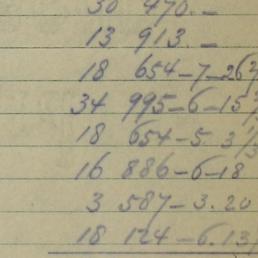 30 470.—
13 913.—
18 654—7—26¾
34 995—6—15½
18 654—5. 3½
16 886—6—18
3 587—3.20
18 124—6.13